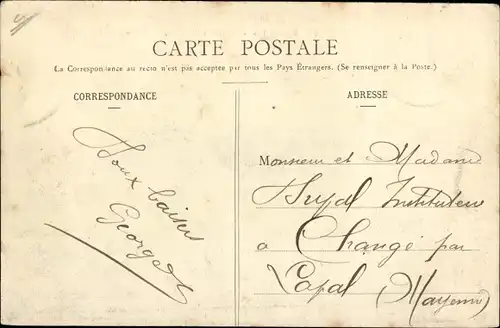 CARTE POSTALE
La Correspondance au recto n'est pas acceptée par tous les Pays Étrangers. (Se renseigner à la Poste.)
CORRESPONDANCE
Doux baisers
Georges
ADRESSE
Monsieur et Madame
Instituteur
à Changé par
Laval (Mayenne)